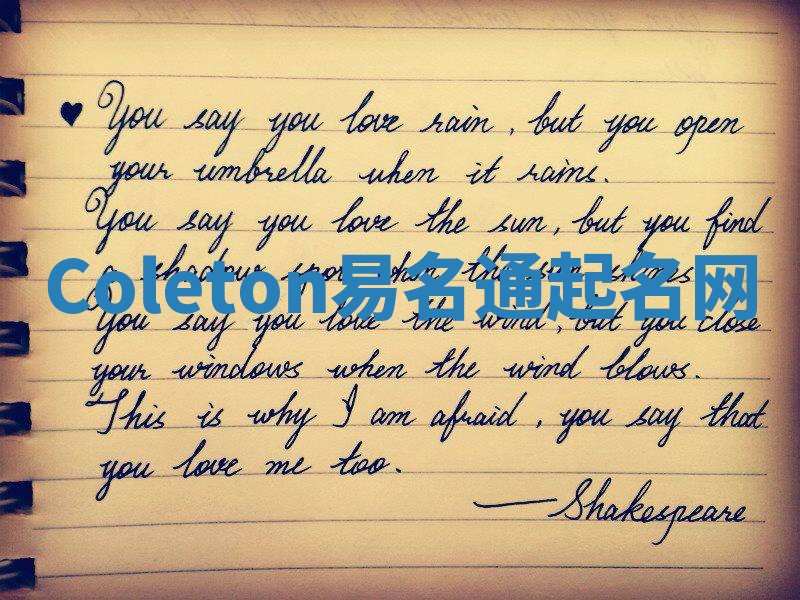 ♥ You say you love rain, but you open
your umbrella when it rains.
You say you love the sun, but you find
a shadow spot when the sun shines
Coleton易名通起名网
You say you love the wind, but you close
your windows when the wind blows.
This is why I am afraid, you say that
you love me too.
—Shakespeare